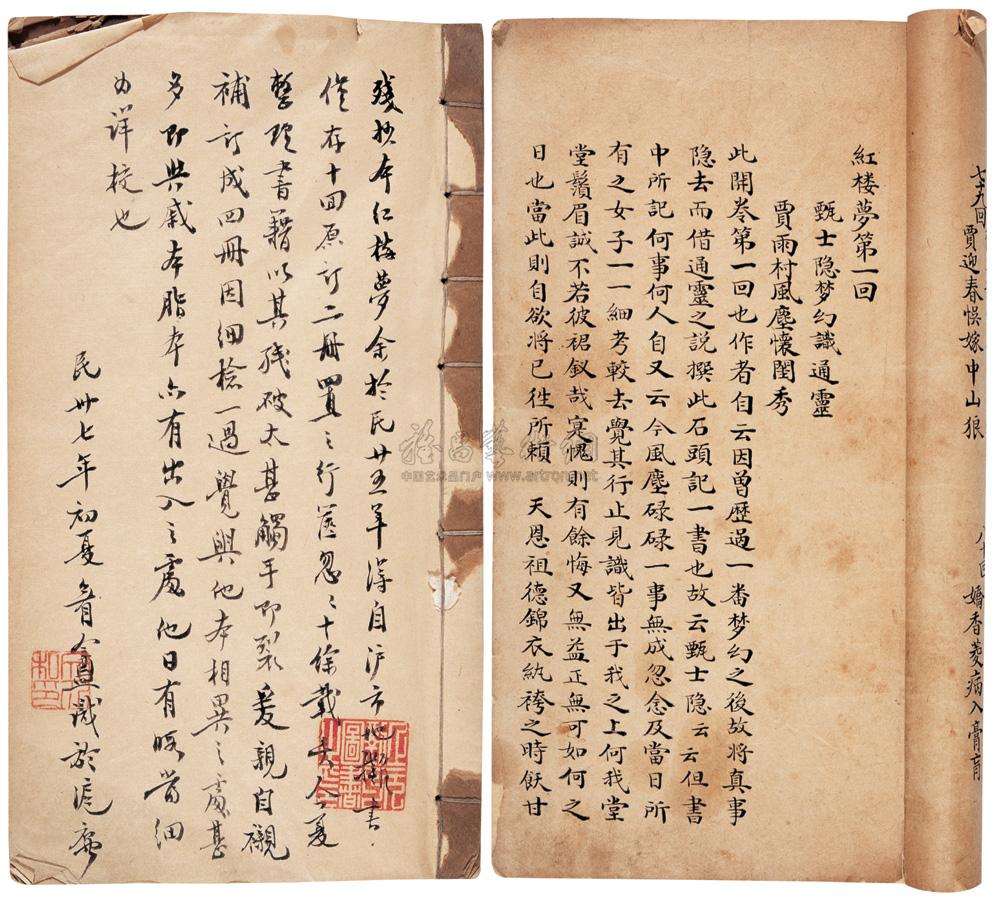 賈迎春悞嫁中山狼
嬌香菱病入膏肓
紅楼夢第一回
甄士隐梦幻識通靈
賈雨村風塵懷閨秀
此開卷第一回也作者自云因曽歷過一番梦幻之後故将真事
隐去而借通靈之説撰此石頭記一書也故云甄士隐云云但書
中所記何事何人自又云今風塵碌碌一事無成忽念及當日所
有之女子一一細考較去覺其行止見識皆出于我之上何我堂
堂鬚眉誠不若彼裙釵哉寔愧則有餘悔又無益正無可如何之
日也當此則自欲将已徃所頼 天恩祖德錦衣紈袴之時飫甘
残抄本红楼夢余於民廿五年得自沪市地攤書
僅存十回原订二冊置之行篋忽〻十餘載矣今夏
整理書籍以其残破太甚觸手即裂爰親自襯
補訂成四冊因細檢一過覺與他本相異之處甚
多即與戚本脂本亦有出入之處他日有暇當細
为詳校也
民卅七年初夏眘盦識於滬寓
中国艺术品门户 www.artron.net